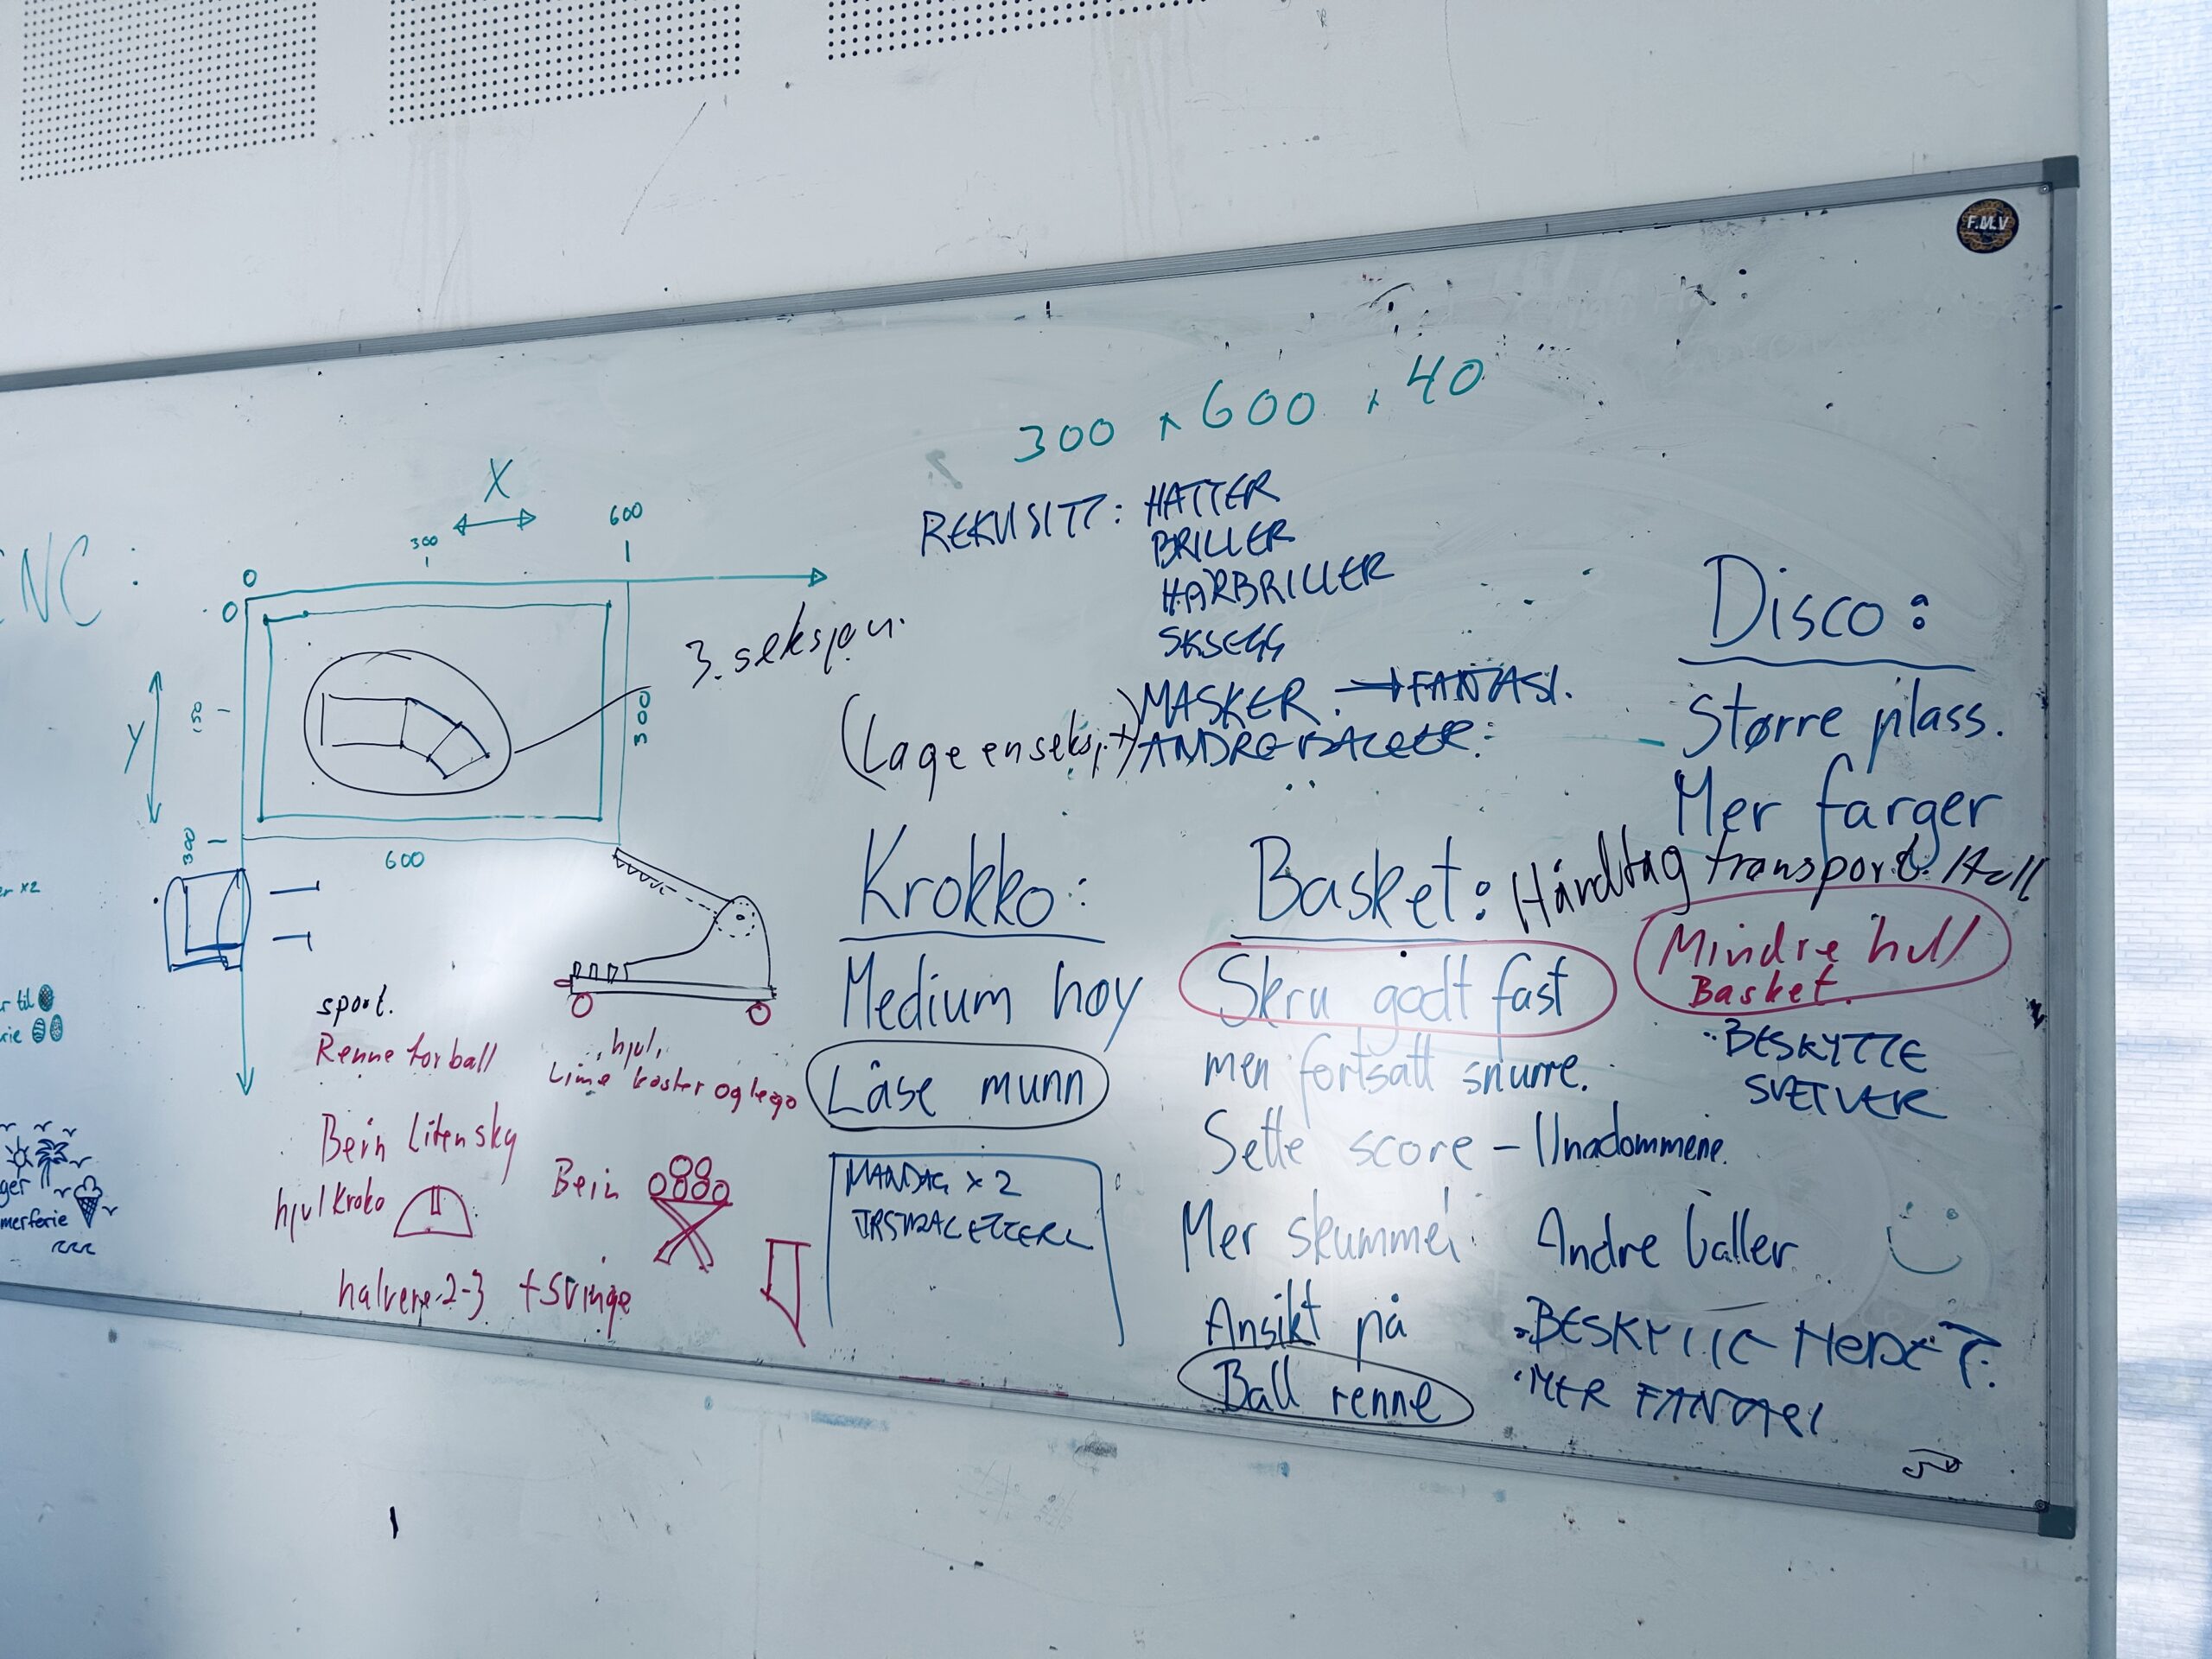 F.M.V
300 x 600 x 40
CNC:
X
300
600
0
0
Y
150
300
300
600
3. seksjon.
REKVISITT: HATTER
BRILLER
HÅRBRILLER
SKJEGG
MASKER. → FANTASI.
(Lage en seksj.)
Disco:
Større plass.
Mer farger
Krokko:
Medium høy
Låse munn
MANDAG x 2
Basket: Håndtag transport. Hull
Skru godt fast
men fortsatt snurre.
Sette score - Ungdommene.
Mer skummel
Ansikt på
Ball renne
Mindre hull
Basket.
BESKYTTE
Andre baller
• BESKYTTE
• MER FANTASI
er x2
er til
rie
ger
merferie
sport.
Renne for ball
Bein liten sky
hjul Kroko
halvere 2-3 + svinge
hjul,
Lime koster og lego
Bein